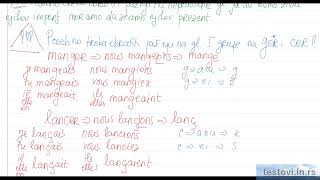 njihov present
Posebno treba obratiti pažnju na gl I grupe na ger i cer!!
manger ⇒ nous mangeons ⇒ mange
je mangeais nous mangions g → a o u → g
tu mangeais vous mangiez g → e i → ž
il elle mangeait ils elles mangeaient
lancer ⇒ nous lançons ⇒ lanç
je lançais nous lancions c → a o u → k
tu lançais vous lanciez c → e i → s
il elle lançait ils elles lançaient
testovi.in.rs